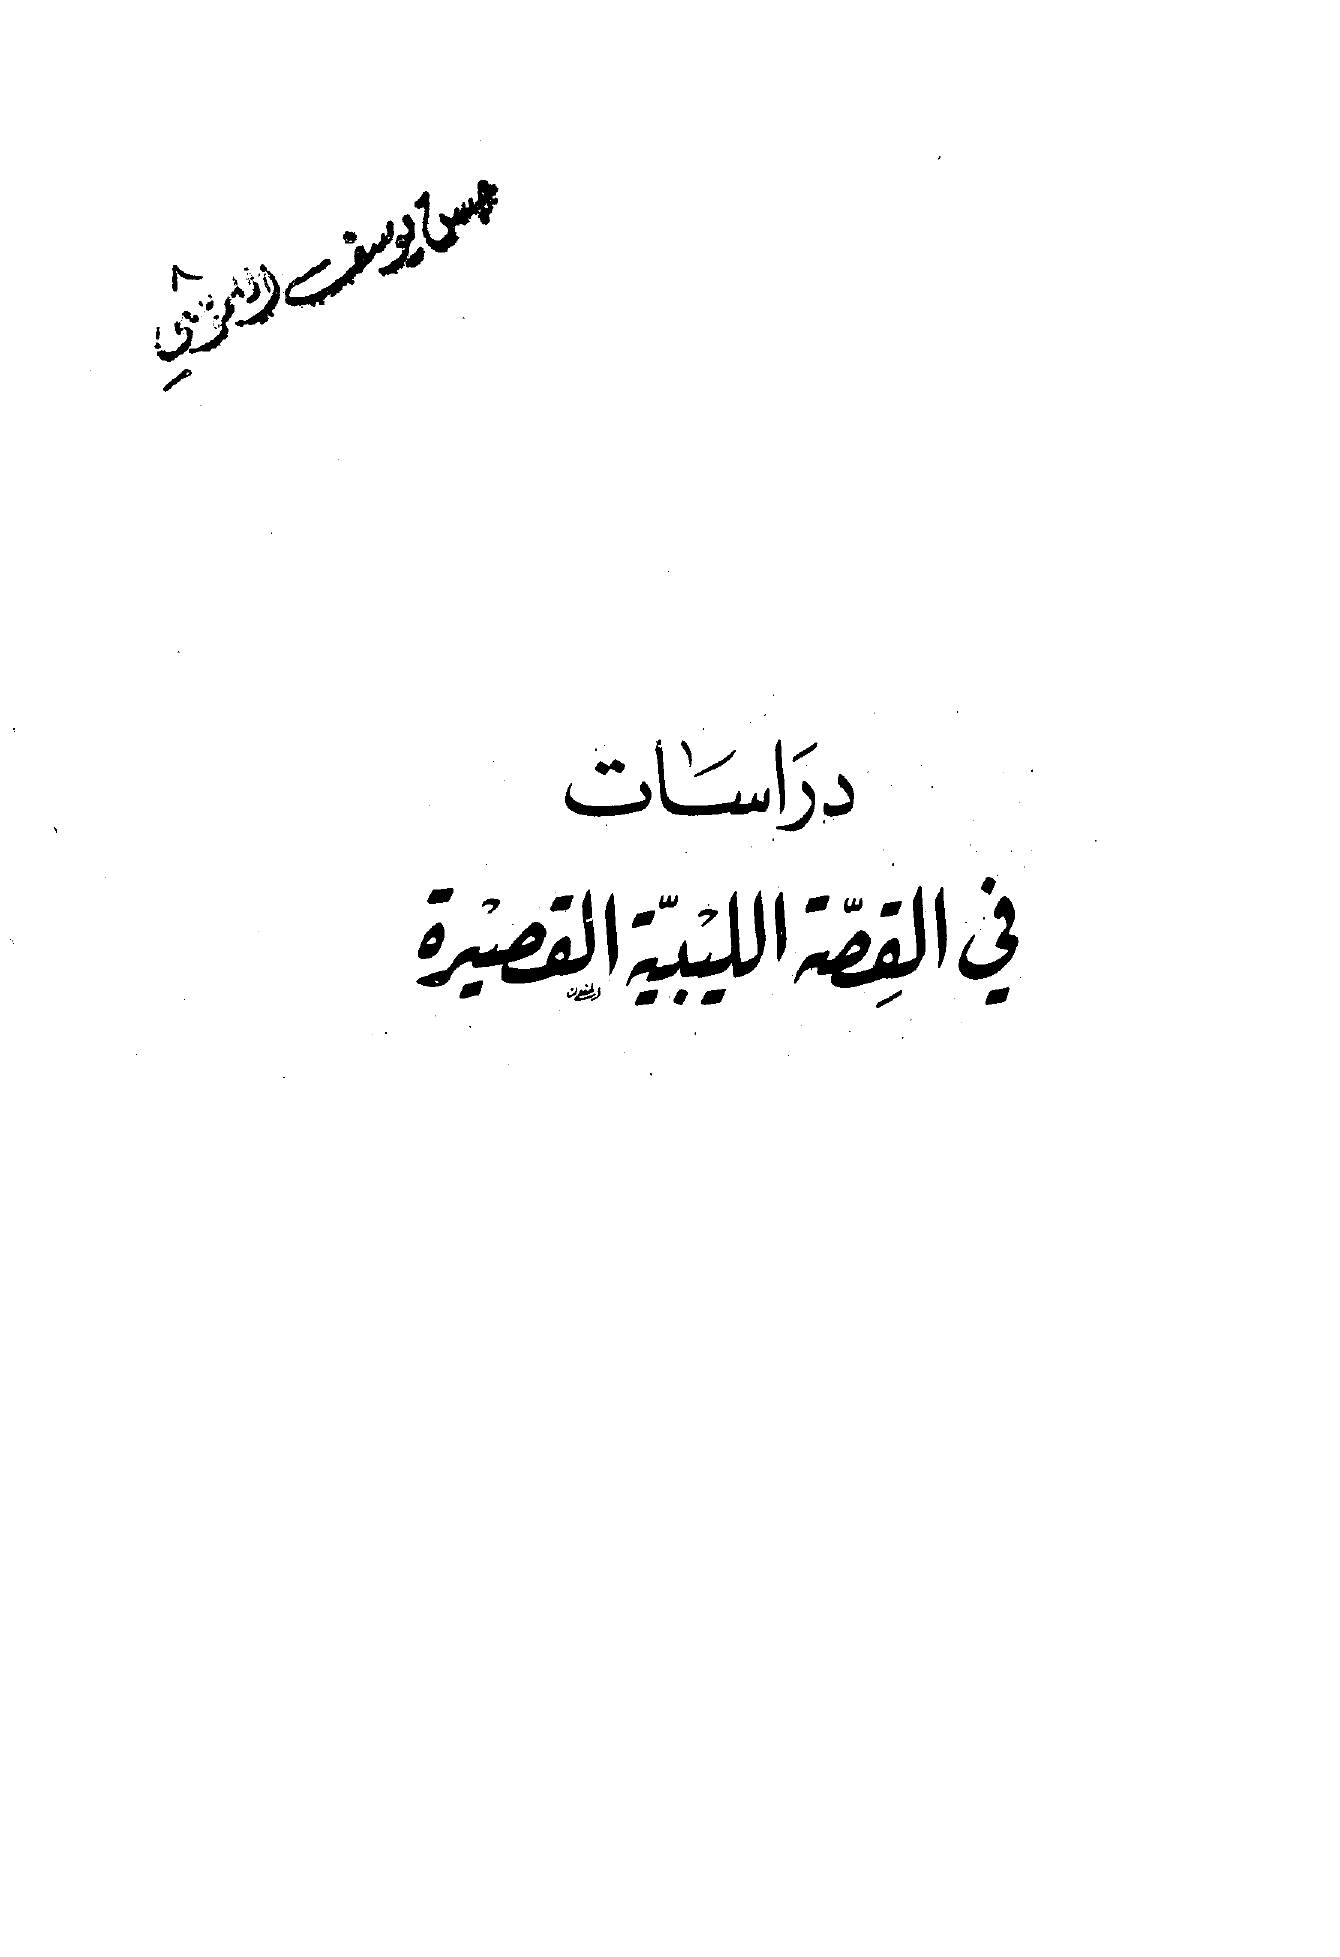 حسن يوسف
دراسات
في القصّة الليْبيّة القصيْرة